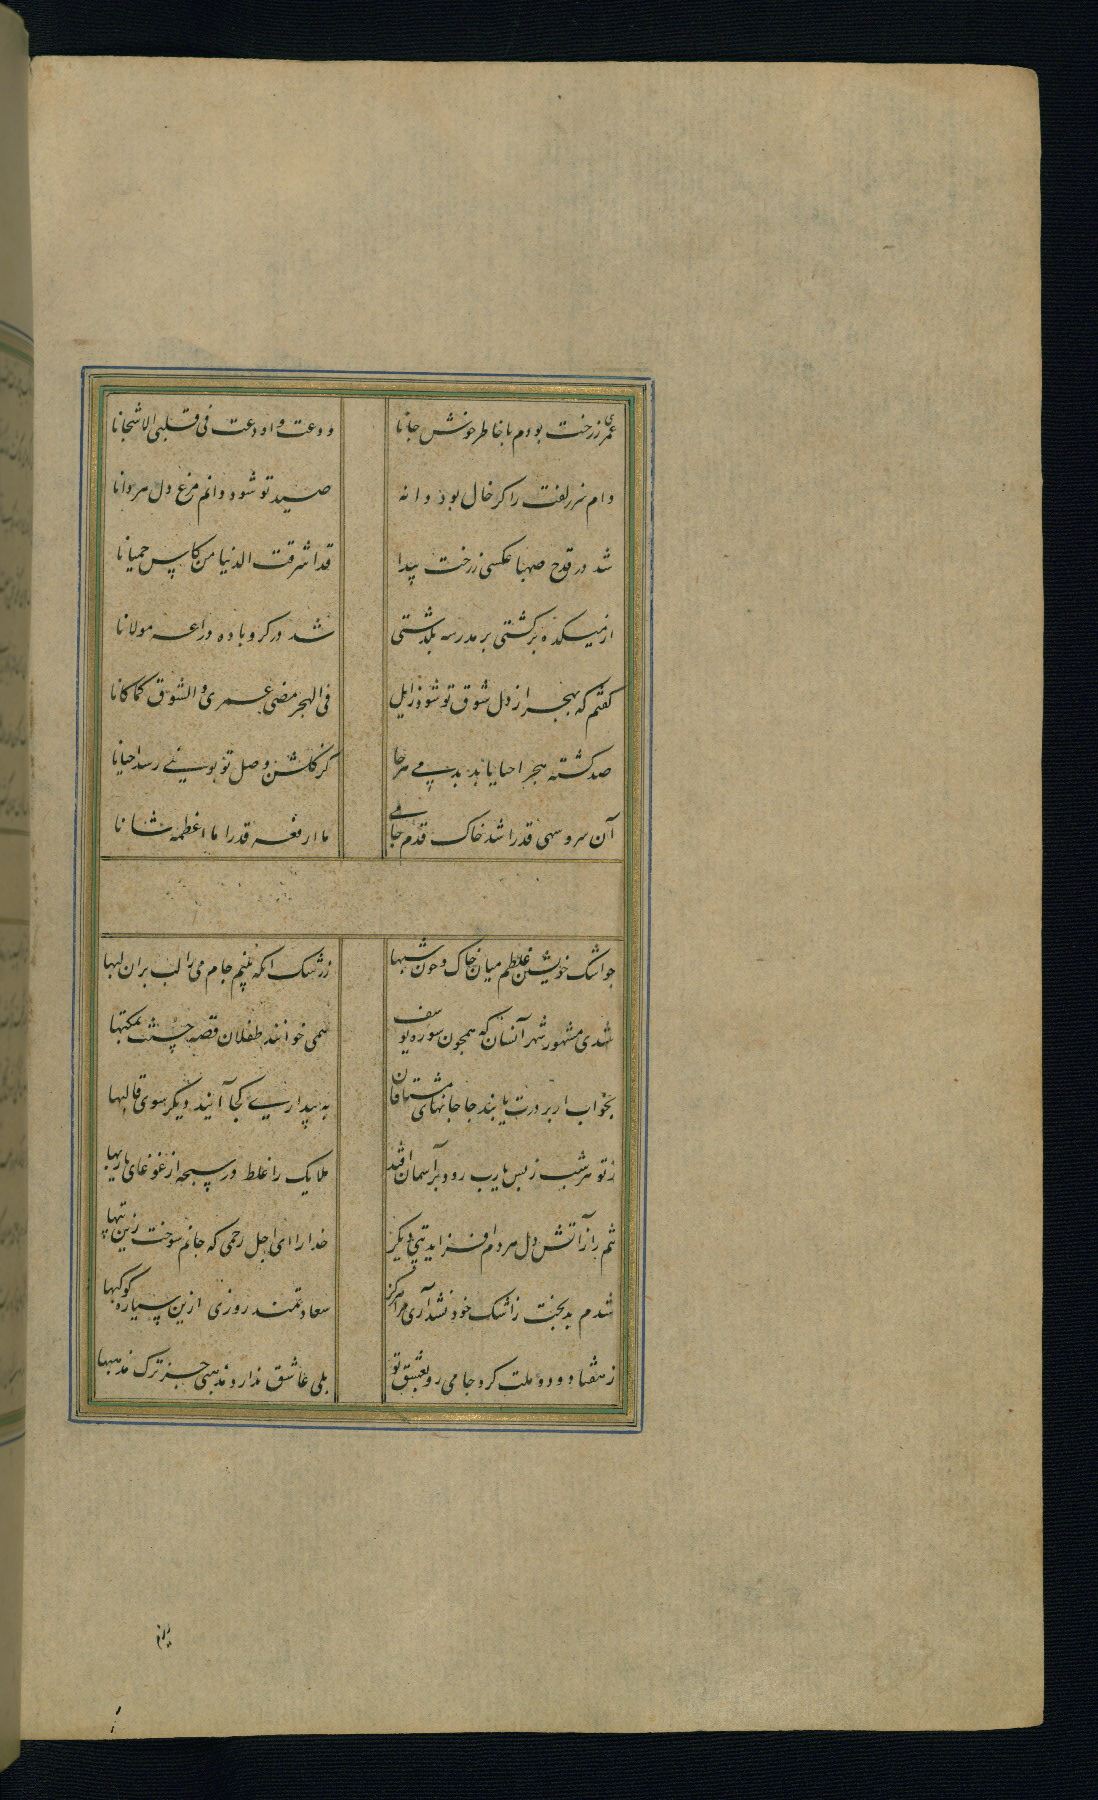 عمری ز رخت بودم با خاطر خوش جانا ودعت و اودعت فی قلبی الاشجانا
دام سر زلفت را کر خال بود دانه صید تو شود دانم مرغ دل مردانا
شد در قدح صهبا عکسی ز رخت پیدا قد اشرقت الدنیا من کاس حمیانا
از میکده برکشتی بر مدرسه بکذشتی شد در کرو باده دراعه مولانا
کفتم که بهجر از دل شوق تو شود زایل فی الهجر مضی عمری و الشوق کما کانا
صد کشته هجر احیا یابد بدمی هر جا کز کلشن وصل تو بویی رسد احیانا
آن سرو سهی قد را شد خاک قدم جامی ما ارفعه قدرا ما اعظمه شانا
جو اشک خویشتن غلطم میان خاک و خون شبها ز رشک انکه بینم جام می را لب بران لبها
شدی مشهور شهر آنسان که همجون سوره یوسف همی خوانند طفلان قصه حسنت بمکتبها
بخواب ار بر درت یابند جا جانهای مشتاقان به بیداری کجا آیند دیکر سوی قالبها
ز تو هر شب ز بس یارب رود بر آسمان افتد ملایک را غلط در سبحه از غوغای یاربها
تنم را ز آتش دل هر دم افزاید تبی دیکر خدا را ای اجل رحمی که جانم سوخت زین تبها
شدم بدبخت ز اشک خود نشد آری مرا هرکز سعادتمند روزی ازین سیاره کوکبها
ز هفتاد و دو ملت کرد جامی رو بعشق تو بلی عاشق ندارد مذهبی جز ترک مذهبها